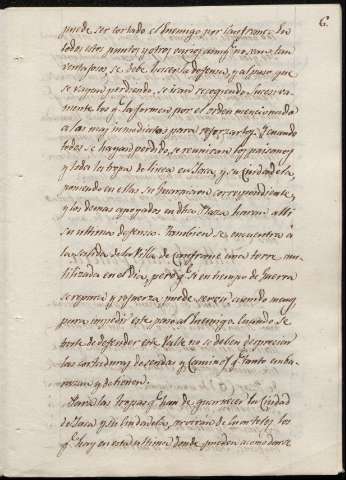 6.
puede ser cortado el Enemigo por los francs. En
todos estos puntos y otros varios, aunq.e no sean tan
ventajosos, se debe hacer la defensa, y al paso que
se vayan perdiendo, se iran recogiendo sucesiva-
mente los q.e la formen por el orden mencionado
a las mas inmediatas para reforzarlos. Y cuando
todos se hayan perdido, se reuniran los paisanos
y toda la tropa de linea en Jaca, y su Ciudadela,
poniendo en ellas su Guarnicion correspondiente,
y los demas apoyados en dha Plaza haran alli
su ultima defensa. Tambien se encuentra á
la salida de la Villa de Canfranc una torre inu-
tilizada en el dia, pero q.e si en tiempo de Guerra
se repara y refuerza puede servir cuando menos
para impedir este paso al Enemigo. Cuando se
trate de defender este Valle no se deben despreciar
las cortaduras de sendas y Caminos q.e tanto emba-
razan y detienen.
Para las tropas q.e han de guarnecer la Ciudad
de Jaca y su Ciudadela, proveran de Cuarteles los
q.e hay en esta ultima donde pueden acomodarse